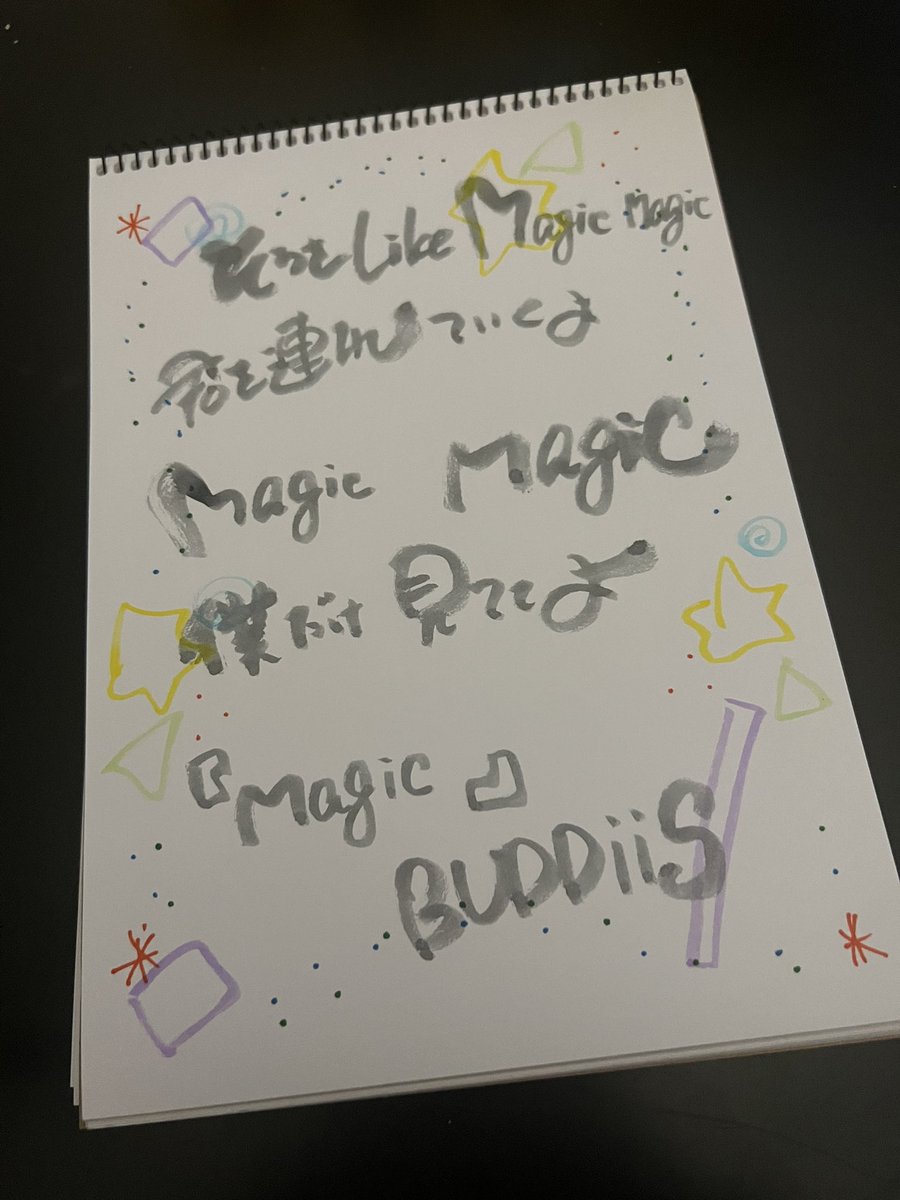 そっと Like Magic Magic
君を連れていくよ
Magic Magic
僕だけ見ててよ
『Magic』
BUDDiiS